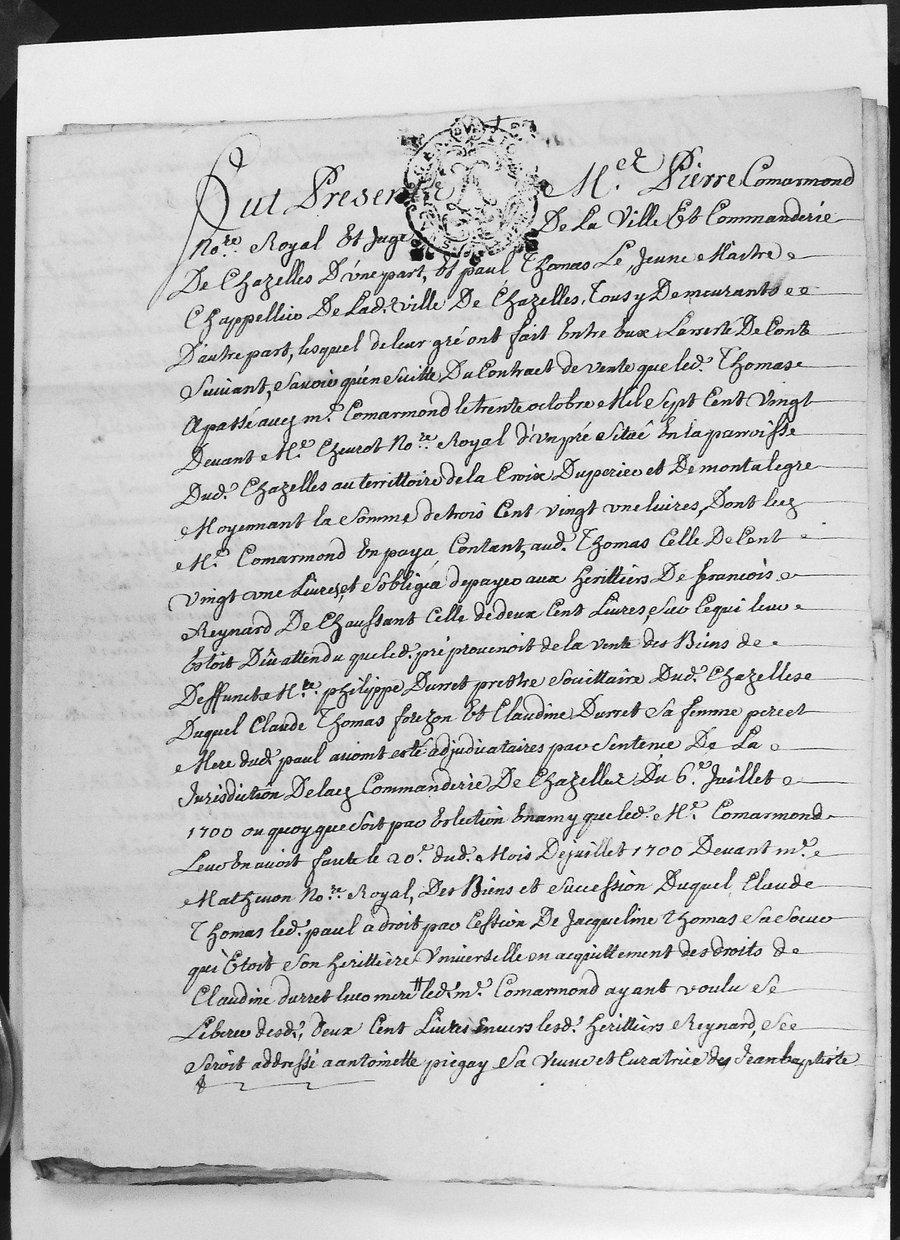 Fut Present Me. Pierre Comarmond
Nore. Royal Et Juge De La Ville Et Commanderie
De Chazelles D'une part, Et paul Thomas Le Jeune Maitre
Chappellier De Lad. ville De Chazelles, Tous y Demeurants
D'autre part, lesquel de leur gré ont fait Entre Eux De Conte
Suivant, Savoir qu'en Suitte Du Contract de vente que led. Thomas
a passé aud. mr. Comarmond le trente octobre Mil Sept Cent vingt
Devant Me. Nore. Royal d'un pré Situé En la parroisse
Dud. Chazelles au territtoire de la Croix Duperier et De montalegre
Moyennant la Somme de trois Cent vingt une livres, Dont led.
Mr. Comarmond En paya Contant, aud. Thomas Celle De Cent
vingt une Livres, et S'obligéa de payer aux herittiers De francois
Reynard De Chaussant Celle de deux Cent Livres, Sur Cequi leur
Estoit Dû attendu que led. pré provenoit de la vente des Biens de
Deffunct Mre. philippe Durret prettre Dud. Chazelles
Duquel Claude Thomas forezon Et Claudine Durret Sa femme pere et
Mere dud. paul avoint esté adjudicataires par Sentence De La
Jurisdiction De lad. Commanderie De Chazelles Du 6e. Juillet
1700 ou quoy que Soit par Eslection En amy que led. Mr. Comarmond
Leur En avoit faite le 20e. dud. Mois De juillet 1700 Devant me.
Mathevon Nore. Royal, Des Biens et Succession Duquel Claude
Thomas led. paul a droit par Cession De Jacqueline Thomas Sa Soeur
qui Etoit Son herittiere Universelle en acquittement des droits de
Claudine durret leur mere led. mr. Comarmond ayant voulu Se
Liberer desd. deux Cent Livres Envers lesd. herittiers Reynard, Se
Seroit addressé a antoinette piegay Sa veuve et Curatrice de Jean baptiste